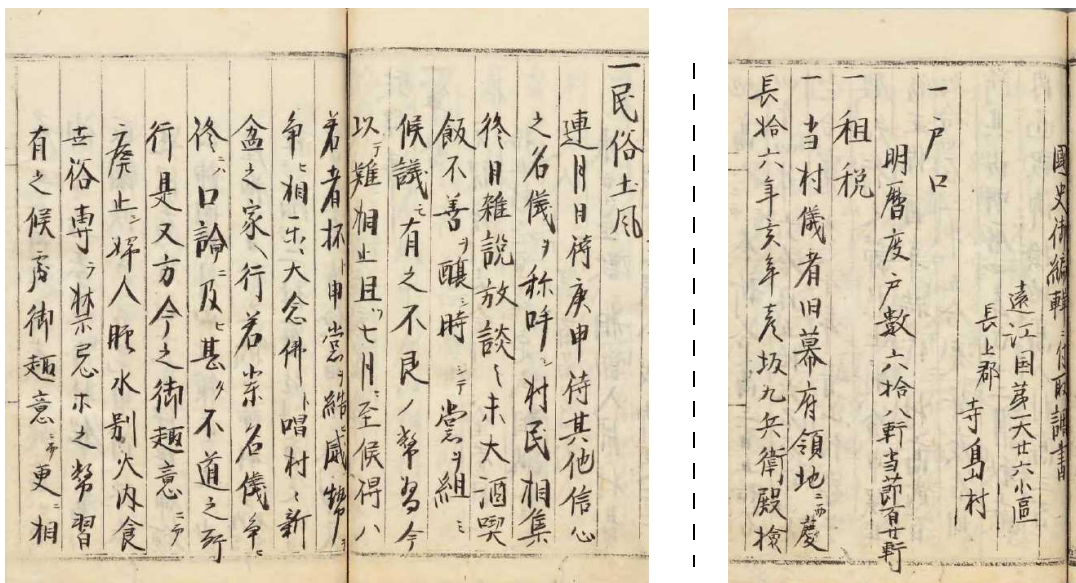 國史御編輯ニ付取調書
遠江国第一大廿六小區
長上郡
寺島村
一戸口
明暦度戸数六拾八軒当節百廿軒
一租税
一当村儀者旧幕府領地ニ而慶
長拾六年亥年彦坂九兵衛殿検
一民俗土風
連月日待庚申待其他信心
之名儀ヲ称呼シ村民相集
終日雑説放談之末大酒喫
飯不善ヲ醸シ時シテ党ヲ組ミ
候議モ有之不良ノ弊習今
以テ難相止且ツ七月ニ至候得ハ
若者抔ト申党ヲ結ヒ威勢ヲ
争ヒ相互ニ大念佛ト唱村々新
盆之家ヘ行若業名儀争ヒ
終ニハ口論ニ及ヒ甚タ不道之所
行是又方今之御趣意ニ而
廃止シ婦人肥水別火内食
世俗専ラ禁忌ホ之弊習
有之候處御趣意ニ而更ニ相